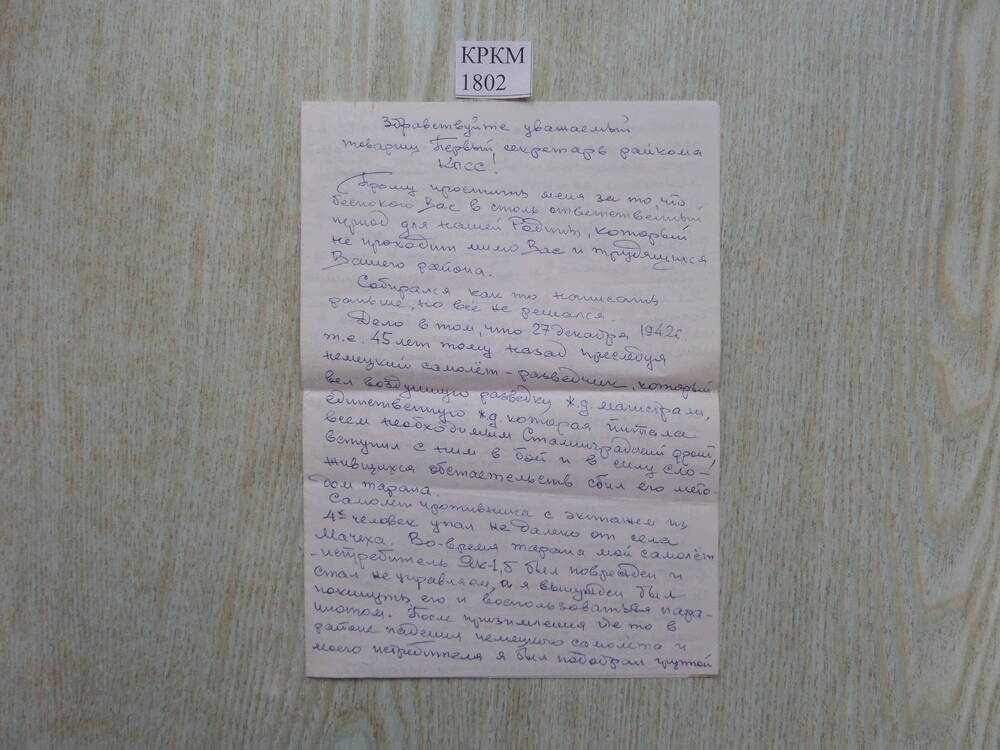 КРКМ
1802
Здравствуйте уважаемый
товарищ Первый секретарь райкома
КПСС!
Прошу простить меня за то, что
беспокою Вас в столь ответственный
период для нашей Родины, который
не проходит мимо Вас и трудящихся
Вашего района.
Собирался как то написать
раньше, но всё не решался.
Дело в том, что 27 декабря 1942г.
т.е. 45 лет тому назад преследуя
немецкий самолёт-разведчик, который
вел воздушную разведку ж.д. магистрали,
единственную ж.д. которая питала
всем необходимым Сталинградский фронт,
вступил с ним в бой и в силу сло-
жившихся обстоятельств сбил его мето-
дом тарана.
Самолёт противника с экипажем из
4х человек упал не далеко от села
Мачеха. Во-время тарана мой самолёт
-истребитель Як-1,б был повреждён и
стал не управляем, а я вынужден был
покинуть его и воспользоваться пара-
шютом. После приземления где то в
районе падения немецкого самолёта и
моего истребителя я был подобран группой